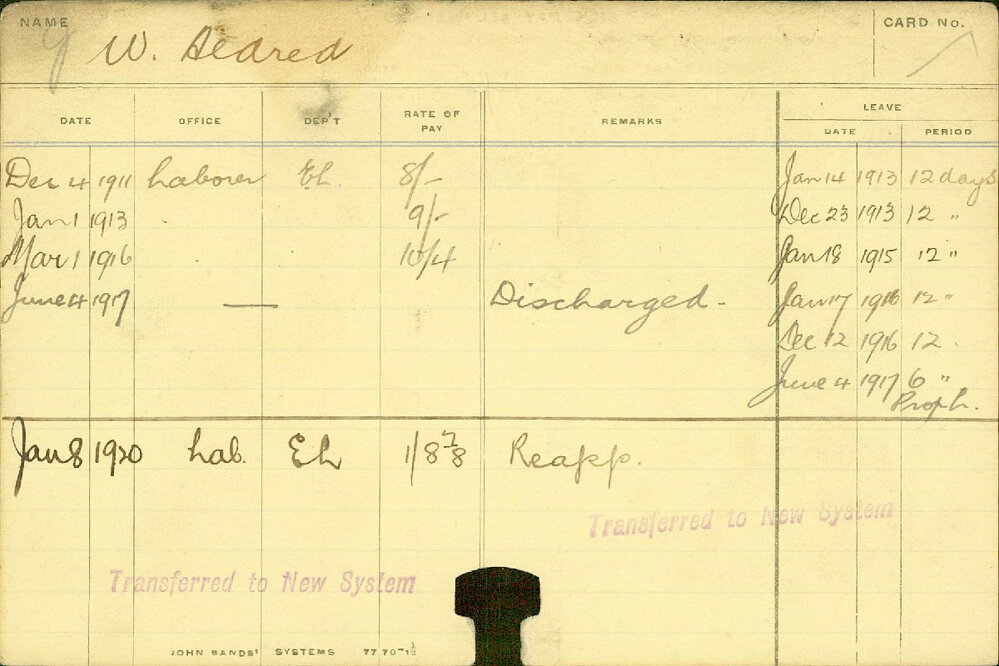 NAME
W. Aldred
CARD No.
DATE OFFICE DEP'T RATE OF PAY REMARKS LEAVE
DATE PERIOD
Dec 4 1911 Laborer EL. 8/- Jan 14 1913 12 days
Jan 1 1913 9/- Dec 23 1913 12 "
Mar 1 1916 10/4 Jan 18 1915 12 "
June 4 1917 — Discharged - Jan 17 1916 12 "
Dec 12 1916 12 .
June 4 1917 6 "
Proph.
Jan 8 1920 Lab. EL 1/8 7/8 Reapp.
Transferred to New System
Transferred to New System
JOHN SANDS' SYSTEMS